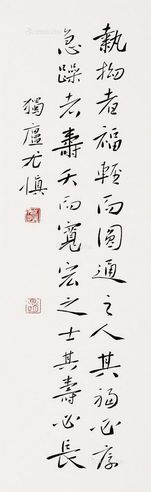 執拗者福輕而圓通之人其福必厚
急躁者壽夭而寬宏之士其壽必長
獨廬尤慎